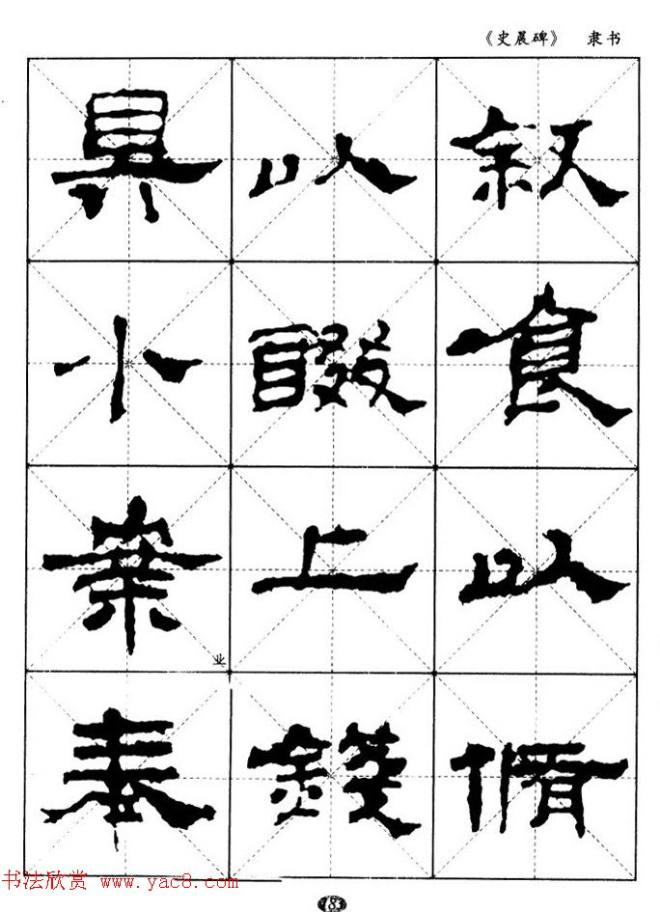 《史晨碑》 隶书
具以叙
小餟食
業上以
业
奉錢脩
书法欣赏 www.yac8.com
183